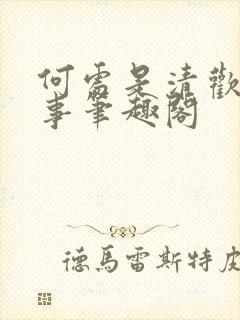 何處是清歡
事筆趣閣
德馬雷斯特皮